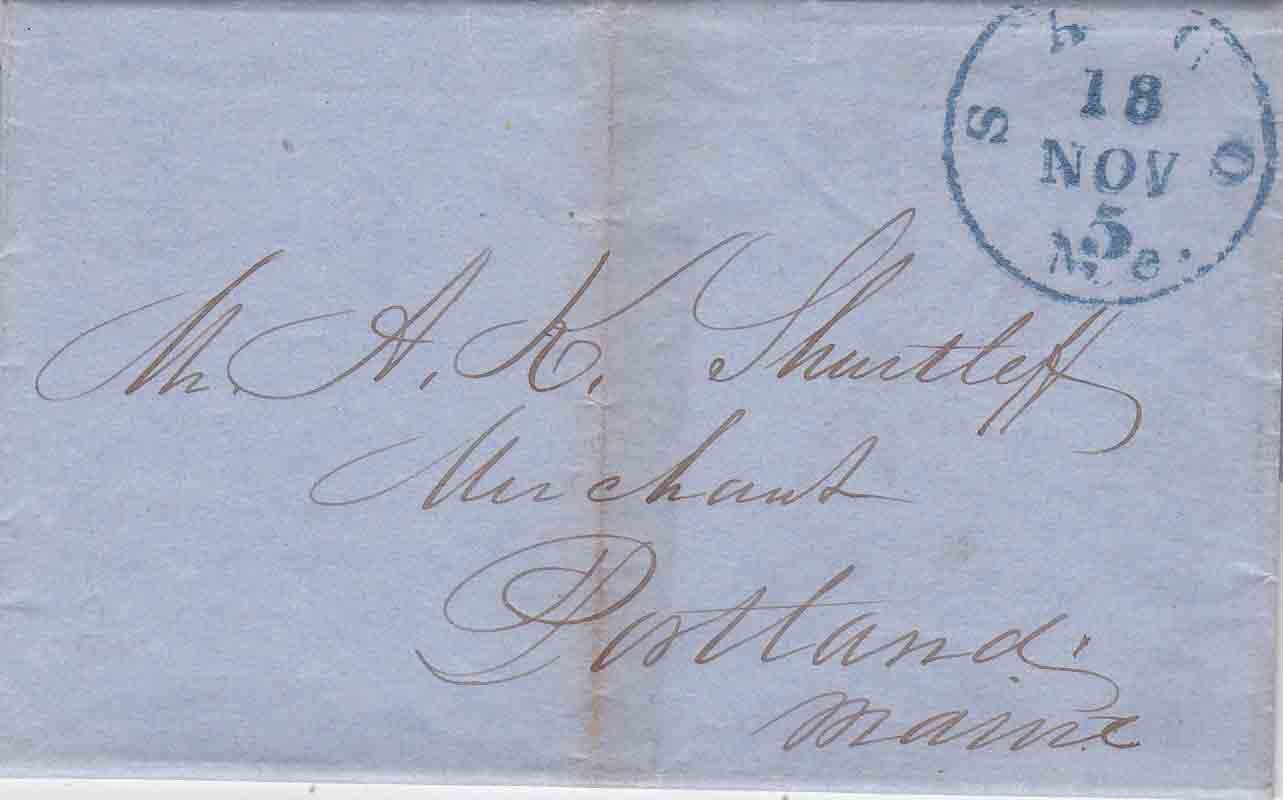 SACO
18
NOV
5
Me.
Mr. A. K. Shurtleff
Merchant
Portland.
Maine